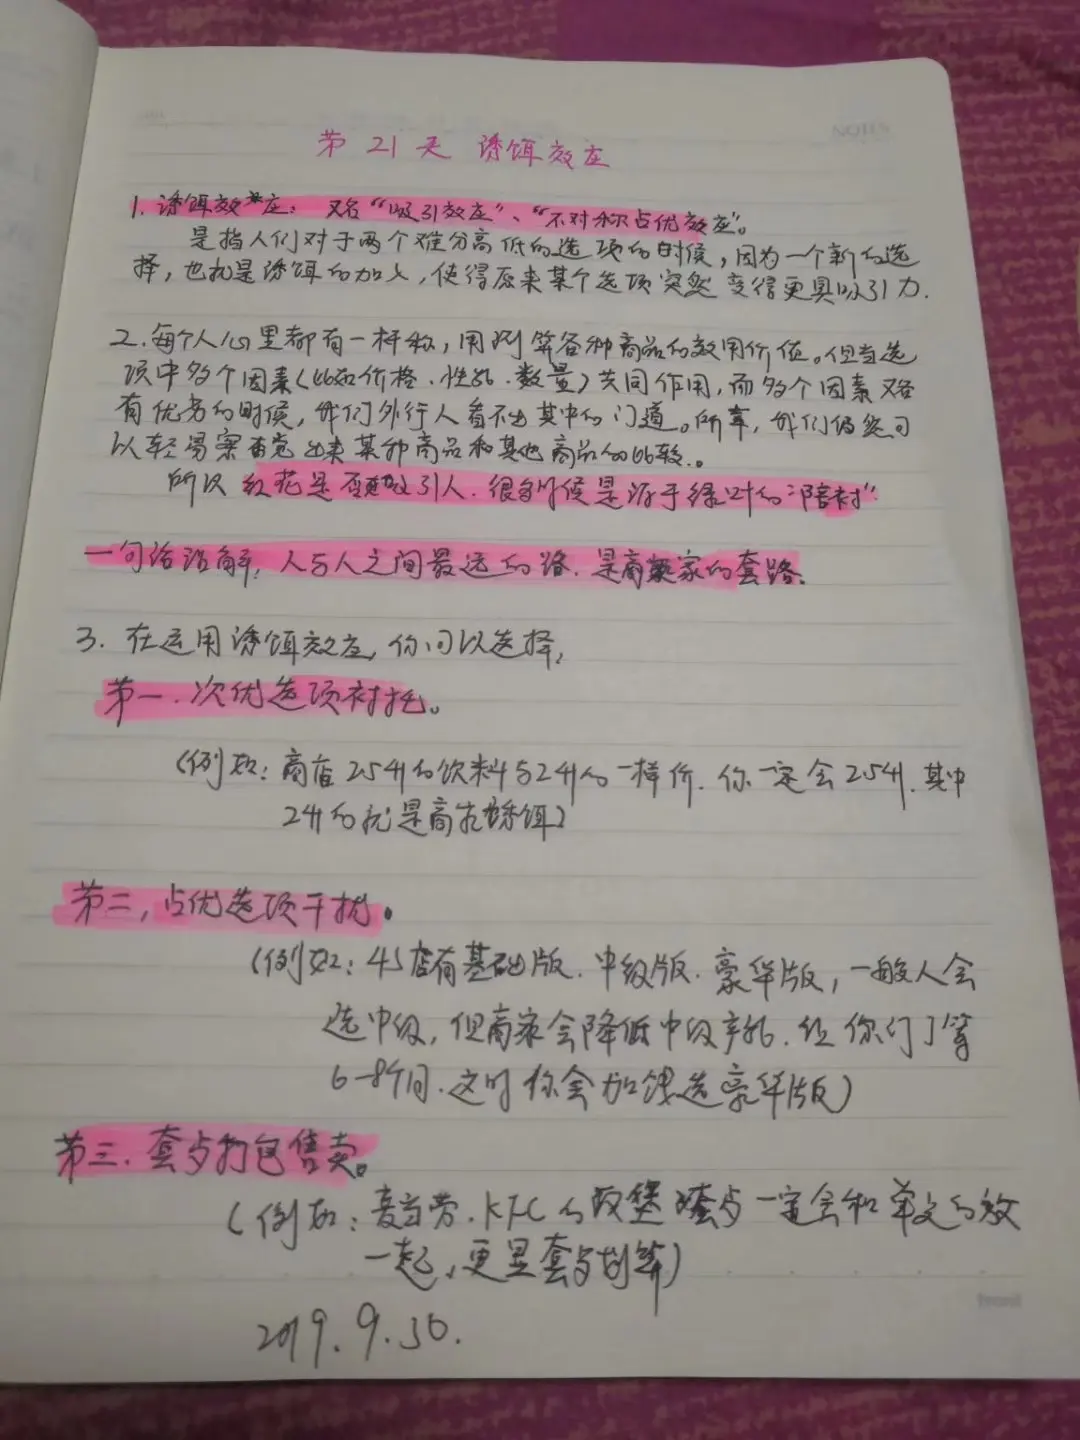 第21天 诱饵效应
1. 诱饵效应：又名“吸引效应”、“不对称占优效应”。
是指人们对于两个难分高低的选项的时候，因为一个新的选
择，也就是诱饵的加入，使得原来某个选项突然变得更具吸引力.
2. 每个人心里都有一杆称，用来计算各种商品的效用价值。但当选
项中多个因素(比如价格、性能、数量)共同作用，而多个因素又各
有优劣的时候，我们外行人看不出其中的门道。所幸，我们仍然可
以轻易察觉出来某种商品和其他商品的比较。
所以 红花是否更吸引人. 很多时候是源于绿叶的“陪衬”
一句话语解, 人与人之间最远的路. 是商家的套路.
3. 在运用诱饵效应, 你可以选择,
第一. 次优选项衬托。
(例如: 商店2.5升的饮料与2升的一样价. 你一定会2.5升. 其中
2升的就是商家诱饵)
第二, 占优选项干扰.
(例如: 4S店有基础版. 中级版. 豪华版, 一般人会
选中级, 但商家会降低中级产能. 让你们等
6-8个月. 这时你会加钱选豪华版)
第三. 套餐打包售卖.
(例如: 麦当劳. KFC的汉堡套餐一定会和单点的放
一起, 更显套餐划算)
2019. 9. 30.